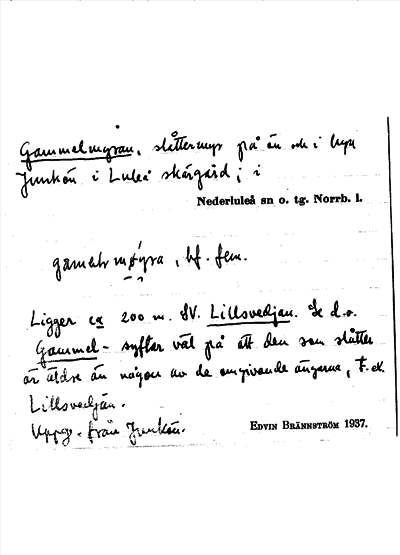 Gammelmyran, slåttermyr på ön och i byn
Junkön i Luleå skärgård; i
Nederluleå sn o. tg. Norrb. l.
bf. fem.
Ligger ca 200 m. SV. Lillsvedjan. Se d.o.
Gammel- syftar väl på att den som slåtter
är äldre än någon av de omgivande ängarna, t.ex.
Lillsvedjan.
Uppg. från Junkön.
EDVIN BRÄNNSTRÖM 1937.